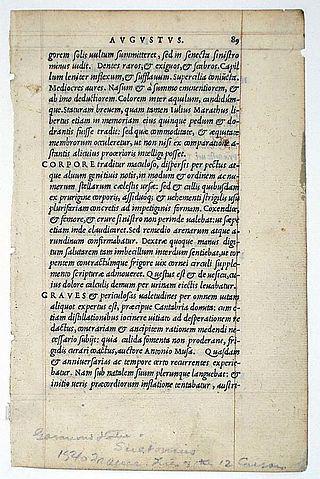 AVGVSTVS. 89
gorem solis uultum summitteret, sed in senecta sinistro
minus uidit. Dentes raros, & exiguos, & scabros. Capil
lum leniter inflexum, & sufflauum. Supercilia coniūcta.
Mediocres aures. Nasum & a summo eminentiorem, &
ab imo deductiorem. Colorem inter aquilum, candidum-
que. Staturam breuem, quam tamen Iulius Marathus
libertus etiam in memoriam eius quinque pedum & do
drantis fuisse tradit: sed quæ commoditate, & æquitate
membrorum occuleretur, ut non nisi ex comparatiōe a
stantis alicuius procerioris intelligi posset.
CORPORE traditur maculoso, dispersis per pectus at-
que aluum genitiuis notis, in modum & ordinem ac nu-
merum stellarum cælestis ursæ: sed & callis quibusdam
ex prurigine corporis, assiduoq; & uehementi strigilis usu
plurifariam concretis ad impetiginis formam. Coxendice,
& femore, & crure sinistro non perinde ualebat: ut sæpe
etiam inde claudicaret. Sed remedio arenarum atque a-
rundinum confirmabatur. Dextræ quoque manus digi
tum salutarem tam imbecillum interdum sentiebat, ut tor
pentem contractumque frigore uix cornei circuli supple-
mento scripturæ admoueret. Questus est & de uesica, cu-
ius dolore calculis demum per urinam eiectis leuabatur.
GRAVES & periculosas ualetudines per omnem uitam
aliquot expertus est, præcipue Cantabria domita: cum
etiam distillationibus iocinere uitiato ad desperationem re
dactus, contrariam & ancipitem rationem medendi ne-
cessario subijt: quia calida fomenta non proderant, fri-
gidis curari coactus, auctore Antonio Musa. Quasdam
& anniuersarias ac tempore certo recurrentes experie-
batur. Nam sub natalem suum plerunque languebat: &
initio ueris præcordiorum inflatione tentabatur, austri-
Suetonius
1540 Lives of the 12 Caesars